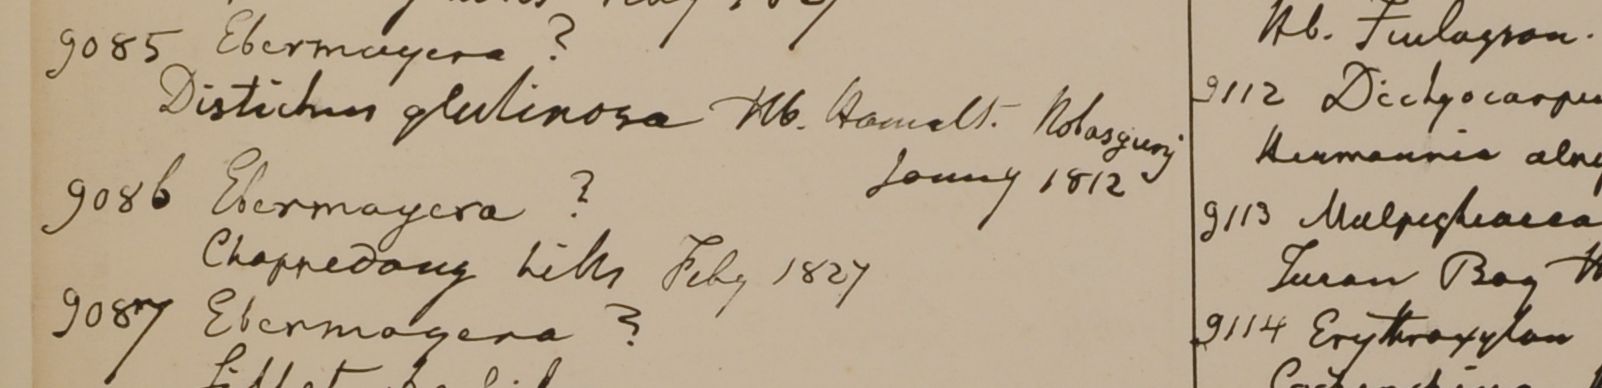 9085 Ebermayera ?
Distichus glutinosa Hb. Hamilt. Nobasgunj
Jouny 1812
9086 Ebermayera ?
Chappedong hills Feby 1827
9087 Ebermayera ?
Hb. Finlayson.
9112 Dichyocarpu
Hermannia
9113 Malpighiacea
Turan Bay H
9114 Erythroxylon